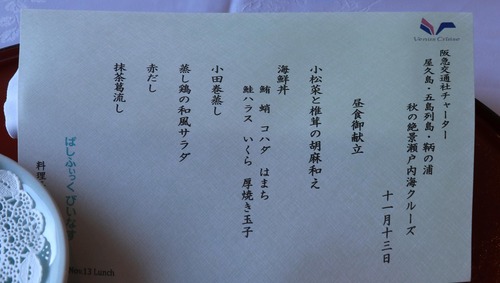 Venus Cruise
阪急交通社チャーター
屋久島・五島列島・鞆の浦
秋の絶景瀬戸内海クルーズ
十一月十三日
昼食御献立
小松菜と椎茸の胡麻和え
海鮮丼
鮪 蛸 コハダ はまち
鮭ハラス いくら 厚焼き玉子
小田巻蒸し
蒸し鶏の和風サラダ
赤だし
抹茶葛流し
ぱしふぃっく びいなす
料理
Nov.13 Lunch